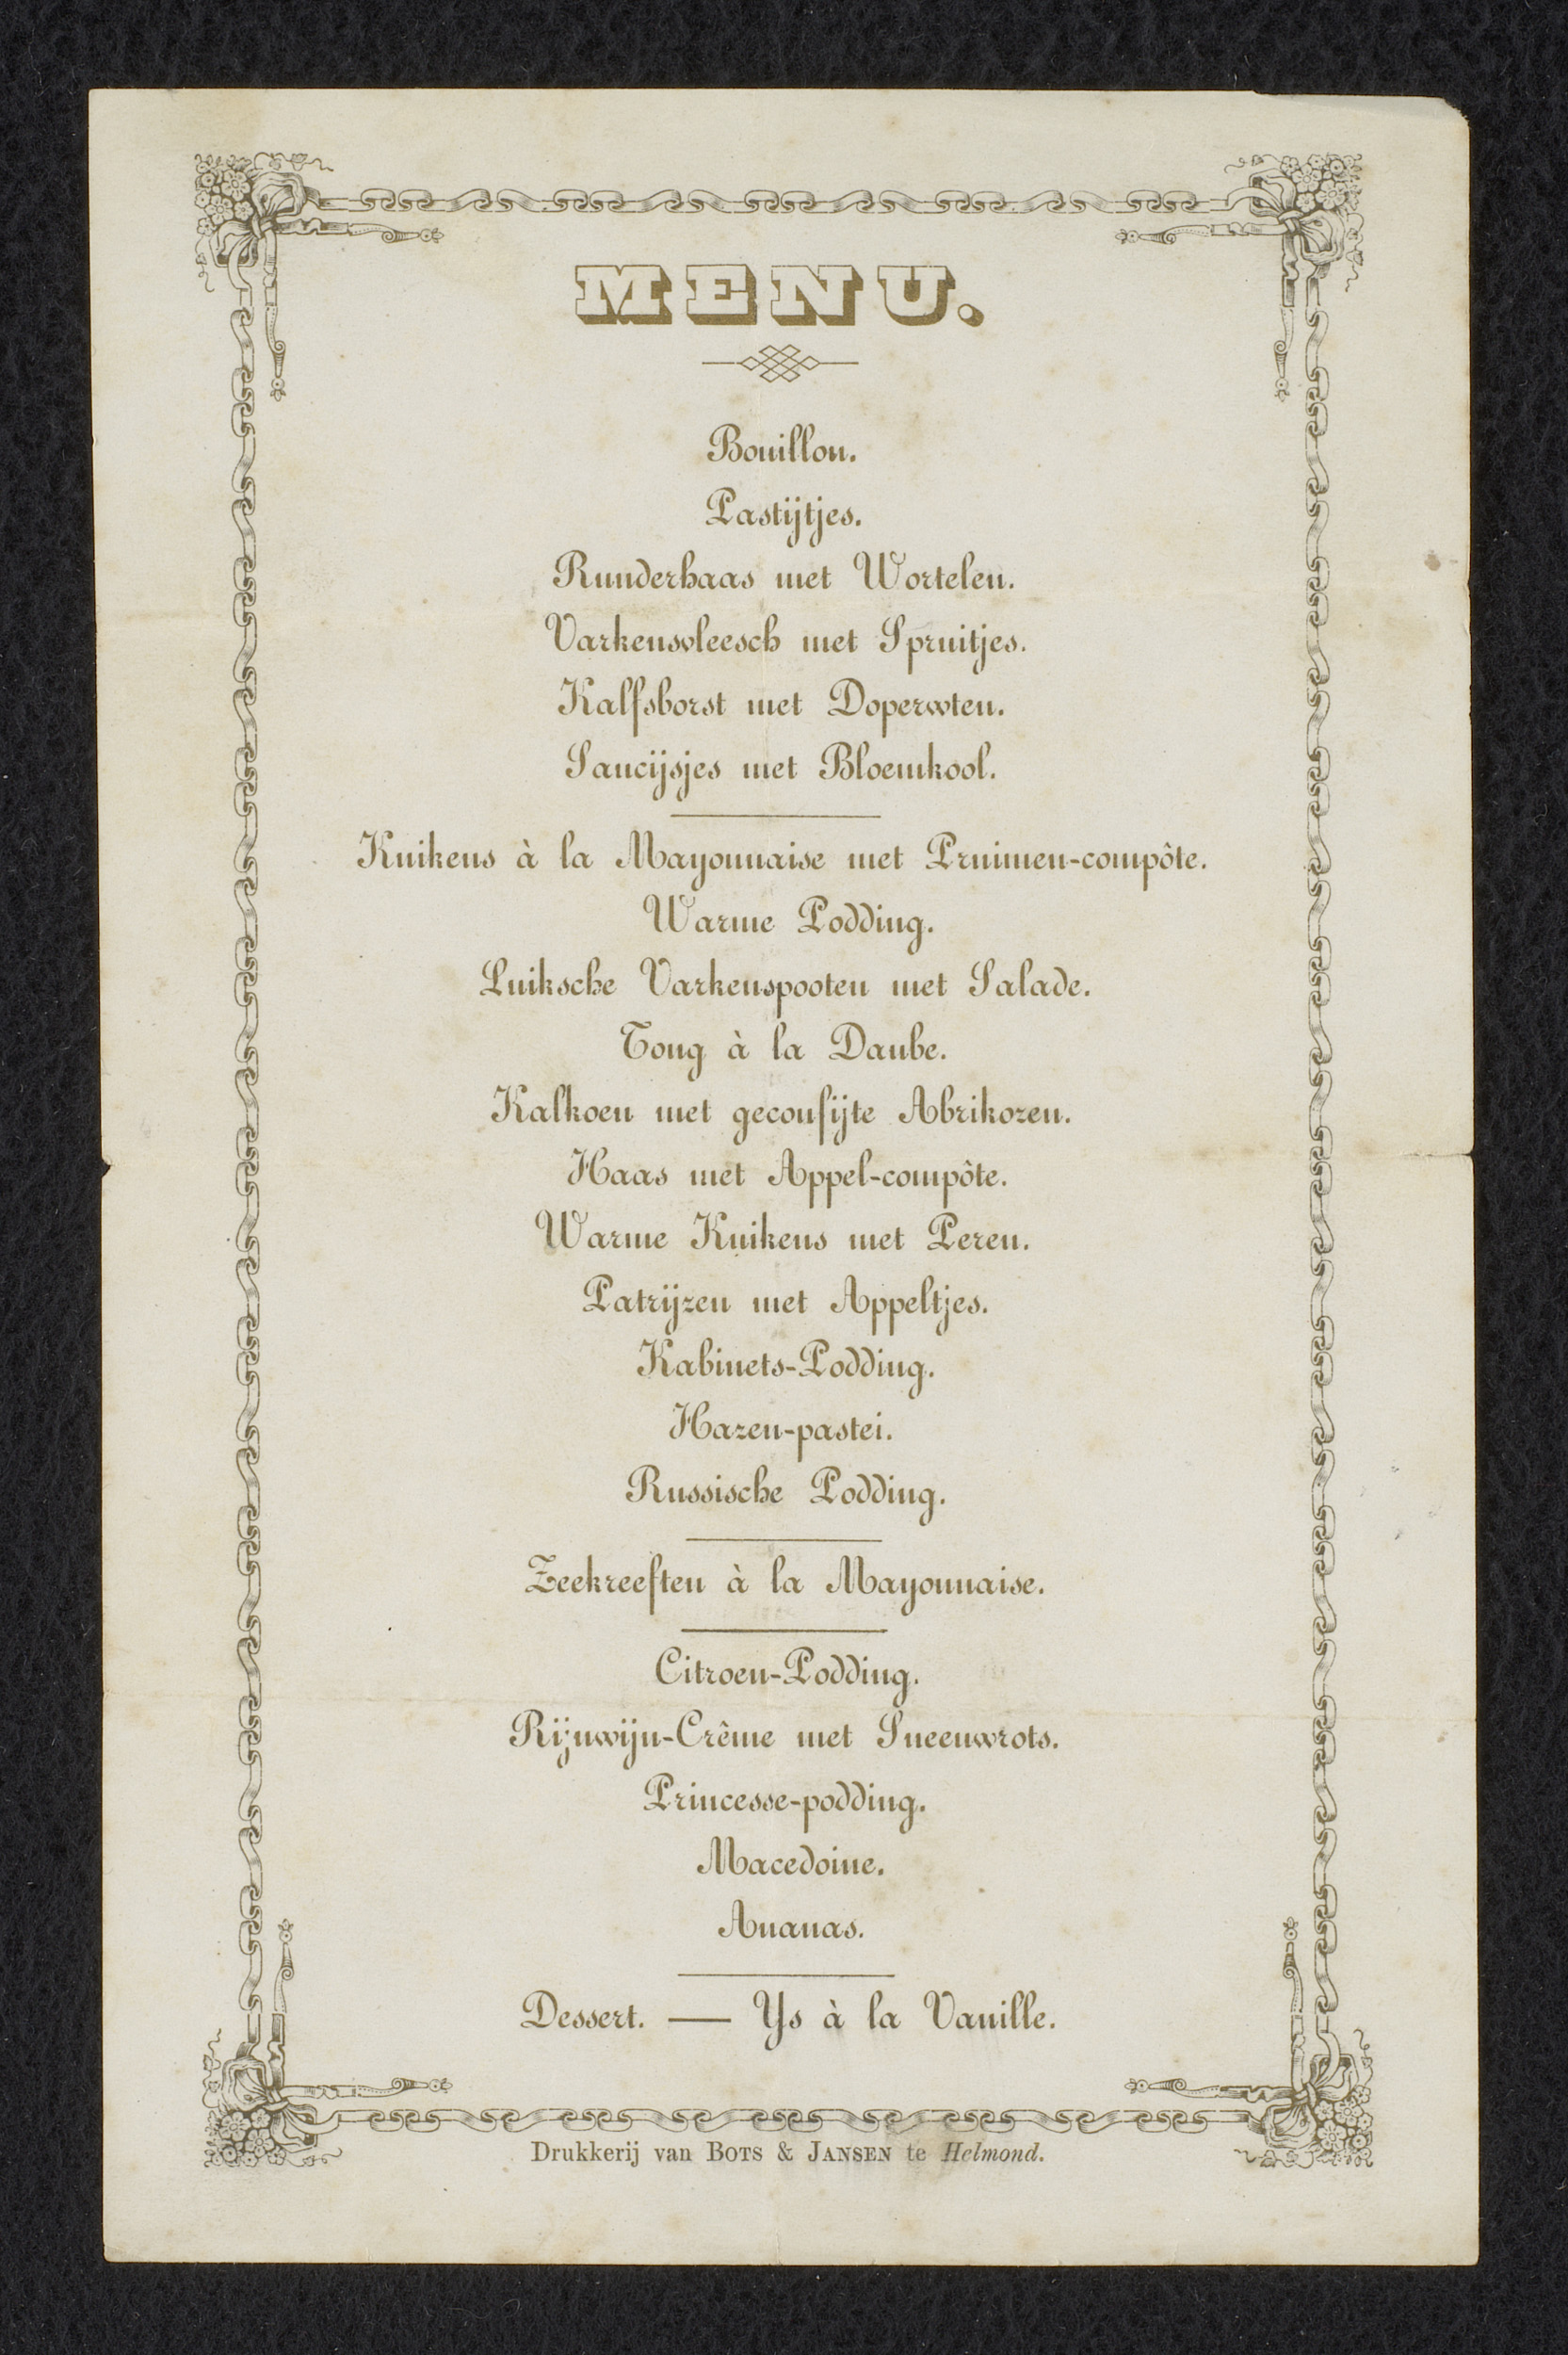 MENU.
Bouillon.
Pastijtjes.
Runderhaas met Wortelen.
Varkensvleesch met Spruitjes.
Kalfsborst met Doperwten.
Saucijsjes met Bloemkool.
Kuikens à la Mayonnaise met Pruimen-compôte.
Warme Podding.
Luiksche Varkenspooten met Salade.
Tong à la Daube.
Kalkoen met geconfijte Abrikozen.
Haas met Appel-compôte.
Warme Kuikens met Peren.
Patrijzen met Appeltjes.
Kabinets-Podding.
Hazen-pastei.
Russische Podding.
Zeekreeften à la Mayonnaise.
Citroen-Podding.
Rijnwijn-Crême met Sneeuwrots.
Princesse-podding.
Macedoine.
Ananas.
Dessert. — Ys à la Vanille.
Drukkerij van BOTS & JANSEN te Helmond.